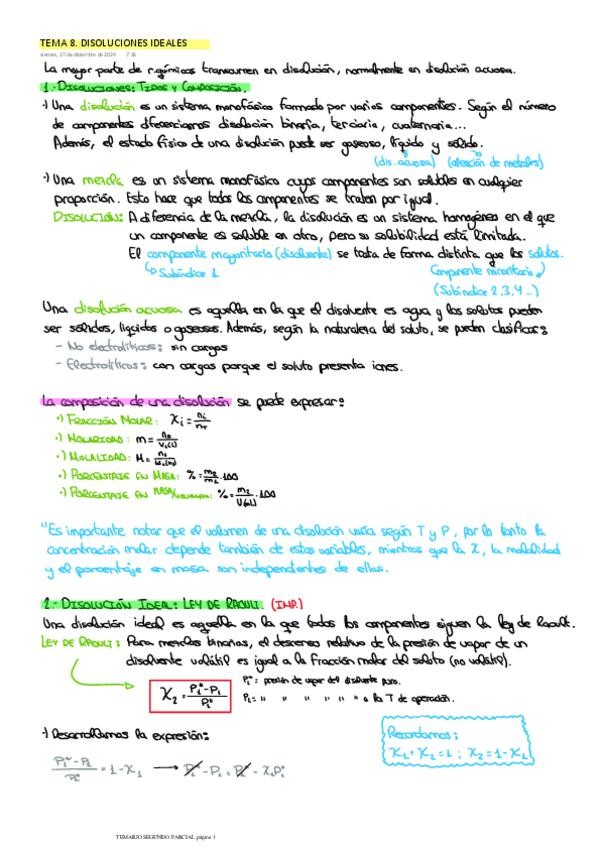 TEMA 8. DISOLUCIONES IDEALES
viernes, 27 de diciembre de 2024 7:16
La mayor parte de r.químicas transcurren en disolución, normalmente en disolución acuosa.
1.- DISOLUCIONES: TIPOS Y COMPOSICIÓN.
·) Una disolución es un sistema monofásico formado por varios componentes. Según el número
de componentes diferenciamos disolución binaria, terciaria, cuaternaria...
Además, el estado físico de una disolución puede ser gaseoso, líquido y sólido.
(dis. acuosa) (aleación de metales)
·) Una mezcla es un sistema monofásico cuyos componentes son solubles en cualquier
proporción. Esto hace que todos los componentes se traten por igual.
DISOLUCIÓN: A diferencia de la mezcla, la disolución es un sistema homogéneo en el que
un componente es soluble en otro, pero su solubilidad está limitada.
El componente mayoritario (disolvente) se trata de forma distinta que los solutos.
↳ Subíndice 1 Componente minoritario
(Subíndice 2,3,4...)
Una disolución acuosa es aquella en la que el disolvente es agua y los solutos pueden
ser sólidos, líquidos o gaseosos. Además, según la naturaleza del soluto, se pueden clasificar:
- No electrolíticos: sin cargas
- Electrolíticos: con cargas porque el soluto presenta iones.
La composición de una disolución se puede expresar:
·) FRACCIÓN MOLAR: χi = ni/nT
·) MOLARIDAD: m = ns/Vd(l)
·) MOLALIDAD: M =
·) PORCENTAJE EN MASA: % = m2/mT · 100
·) PORCENTAJE EN MASA/VOLUMEN: % = m2/V(l) · 100
"Es importante notar que el volumen de una disolución varía según T y P, por lo tanto la
concentración molar depende también de estas variables, mientras que la χ, la molalidad
y el porcentaje en masa son independientes de ellas.
2.- DISOLUCIÓN IDEAL: LEY DE RAOULT. (IMP.)
Una disolución ideal es aquella en la que todos los componentes siguen la ley de Raoult.
LEY DE RAOULT: Para mezclas binarias, el descenso relativo de la presión de vapor de un
disolvente volátil es igual a la fracción molar del soluto (no volátil).
χ2 = P1* - P1 / P1*
P1* = presión de vapor del disolvente puro.
P1 = " " " " " " a la T de operación.
·) Desarrollamos la expresión:
P1* - P1 / P1* = 1 - χ1 → P1* - P1 = P1* - χ1P1*
Recordamos:
χ1 + χ2 = 1 ; χ2 = 1 - χ1
TEMARIO SEGUNDO PARCIAL página 1